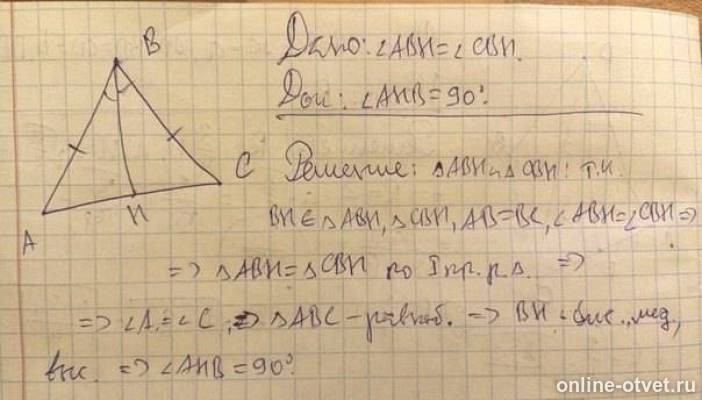 B
Дано: ∠ABH=∠CBH.
Док: ∠AHB=90°.
C
Решение: △ABH и △CBH: т.к.
H
BH ∈ △ABH, △CBH, AB=BC, ∠ABH=∠CBH =>
A
=> △ABH=△CBH по I пр. р △. =>
=> ∠A=∠C, => △ABC – равноб. => BH - бис., мед.,
выс. => ∠AHB=90°.
online-otvet.ru